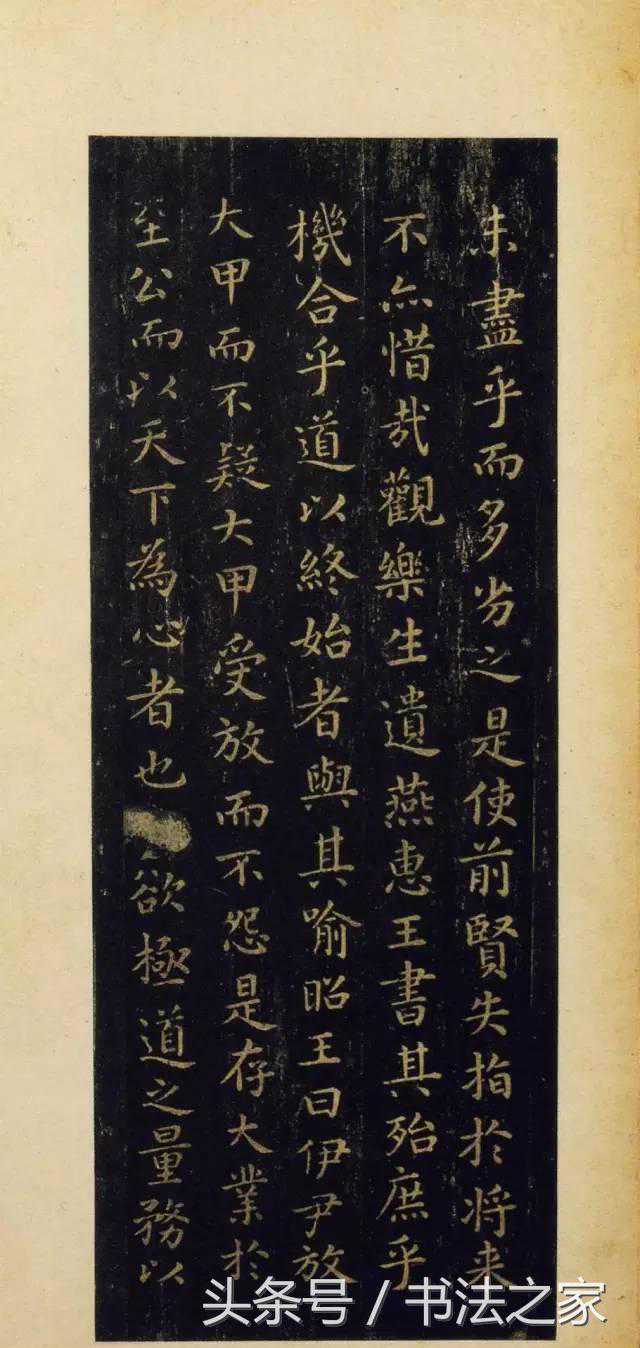 未盡乎而多劣之是使前賢失指於将来
不亦惜哉觀樂生遺燕惠王書其殆庶乎
機合乎道以終始者與其喻昭王曰伊尹放
大甲而不疑大甲受放而不怨是存大業於
至公而以天下為心者也欲極道之量務以
头条号 / 书法之家